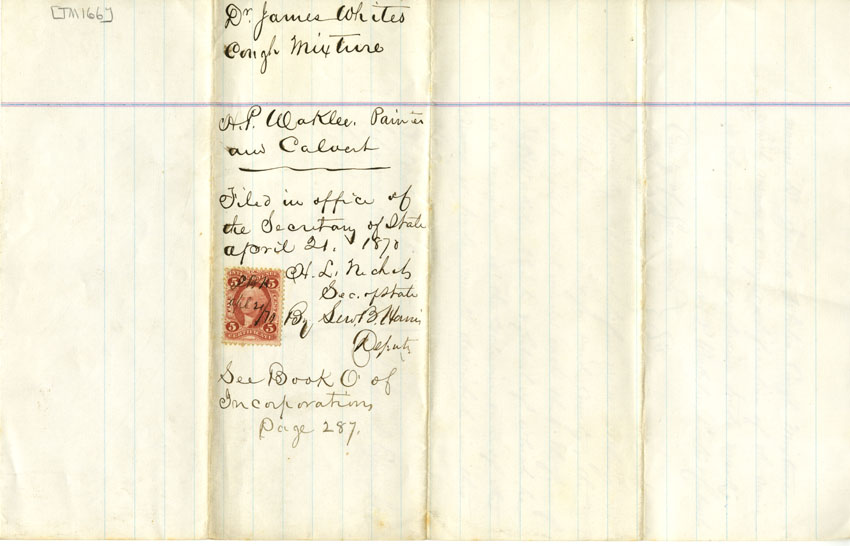 [TM166]
Dr James Whites
Cough Mixture
H.P. Waklee. Painter
and Calvert
Filed in office of
the Secretary of State
april 21. 1870
H. L. Nichols
Sec. of State
By Harris
Deputy
5 5
5 5
See Book O of
Incorporations
Page 287.